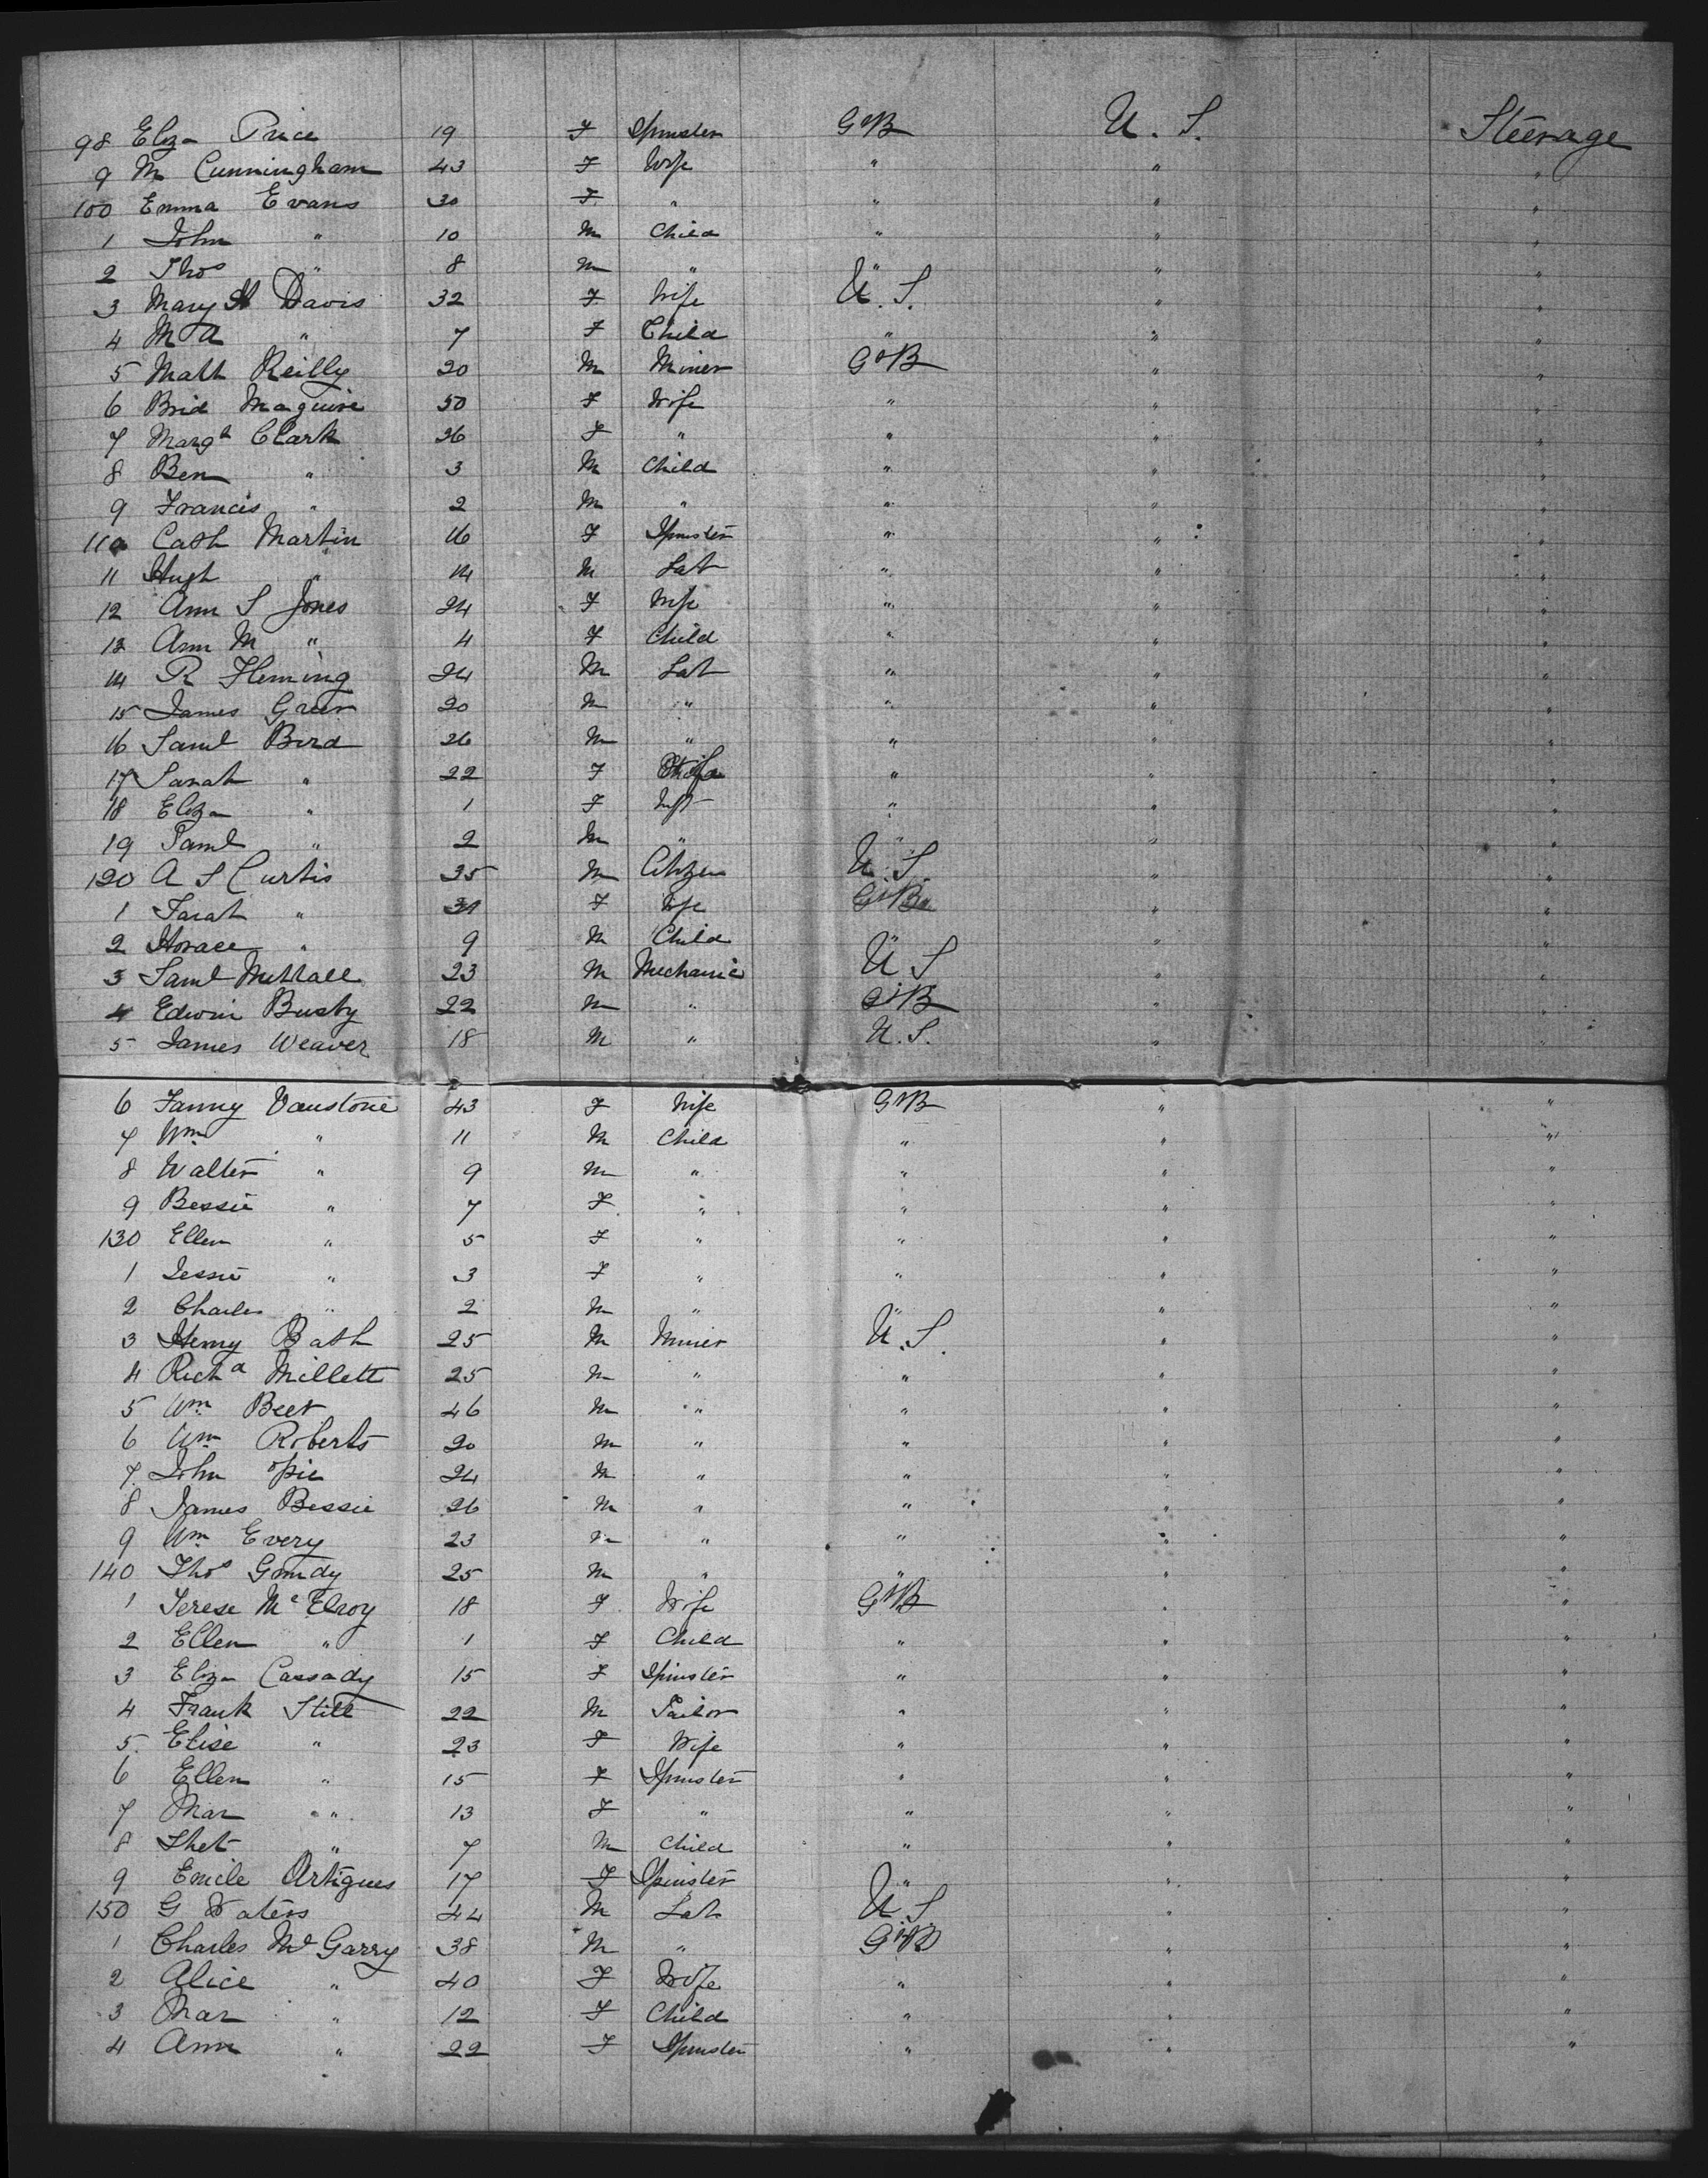 98 Eliza Price 19 F Spinster GtB U. S. Steerage
9 M Cunningham 43 F Wife " " "
100 Emma Evans 30 F " " " "
1 John " 10 M Child " " "
2 Thos " 8 M " " " "
3 Mary H Davis 32 F Wife U. S. " "
4 M A " 7 F Child " " "
5 Matt Reilly 20 M Miner GtB " "
6 Brid Maguire 50 F Wife " " "
7 Margt Clark 26 F " " " "
8 Ben " 3 M Child " " "
9 Francis " 2 M " " " "
110 Cath Martin 16 F Spinster " " "
11 Hugh " 14 M Lab " " "
12 Ann S Jones 24 F Wife " " "
13 Ann M " 4 F Child " " "
14 R Fleming 24 M Lab " " "
15 James Greer 20 M " " " "
16 Saml Bird 26 M " " " "
17 Sarah " 22 F Wife " " "
18 Eliza " 1 F Inft " " "
19 Saml " 2 M " " " "
120 A S Curtis 35 M Citizen U. S. " "
1 Sarah " 31 F Wife GtB " "
2 Horace " 9 M Child " " "
3 Saml 23 M Mechanic U S " "
4 Edwin Busby 22 M " GtB " "
5 James Weaver 18 M " U. S. " "
6 Fanny Vanstone 43 F Wife GtB " "
7 Wm " 11 M Child " " "
8 Walter " 9 M " " " "
9 Bessie " 7 F " " " "
130 Ellen " 5 F " " " "
1 Jessie " 3 F " " " "
2 Charles " 2 M " " " "
3 Henry Bath 25 M Miner U. S. " "
4 Richd Millett 25 M " " " "
5 Wm Beer 46 M " " " "
6 Wm Roberts 20 M " " " "
7 John Opie 24 M " " " "
8 James Bessie 26 M " " " "
9 Wm Every 23 M " " " "
140 Thos Grundy 25 M " " " "
1 Terese McElroy 18 F Wife GtB " "
2 Ellen " 1 F Child " " "
3 Eliza Cassady 15 F Spinster " " "
4 Frank Still 22 M Tailor " " "
5 Elise " 23 F Wife " " "
6 Ellen " 15 F Spinster " " "
7 Mar " 13 F " " " "
8 " 7 M Child " " "
9 Emile Artigues 17 F Spinster " " "
150 G Waters 44 M Lab U S " "
1 Charles McGarry 38 M " GtB " "
2 Alice " 40 F Wife " " "
3 Mar " 12 F Child " " "
4 Ann " 22 F Spinster " " "